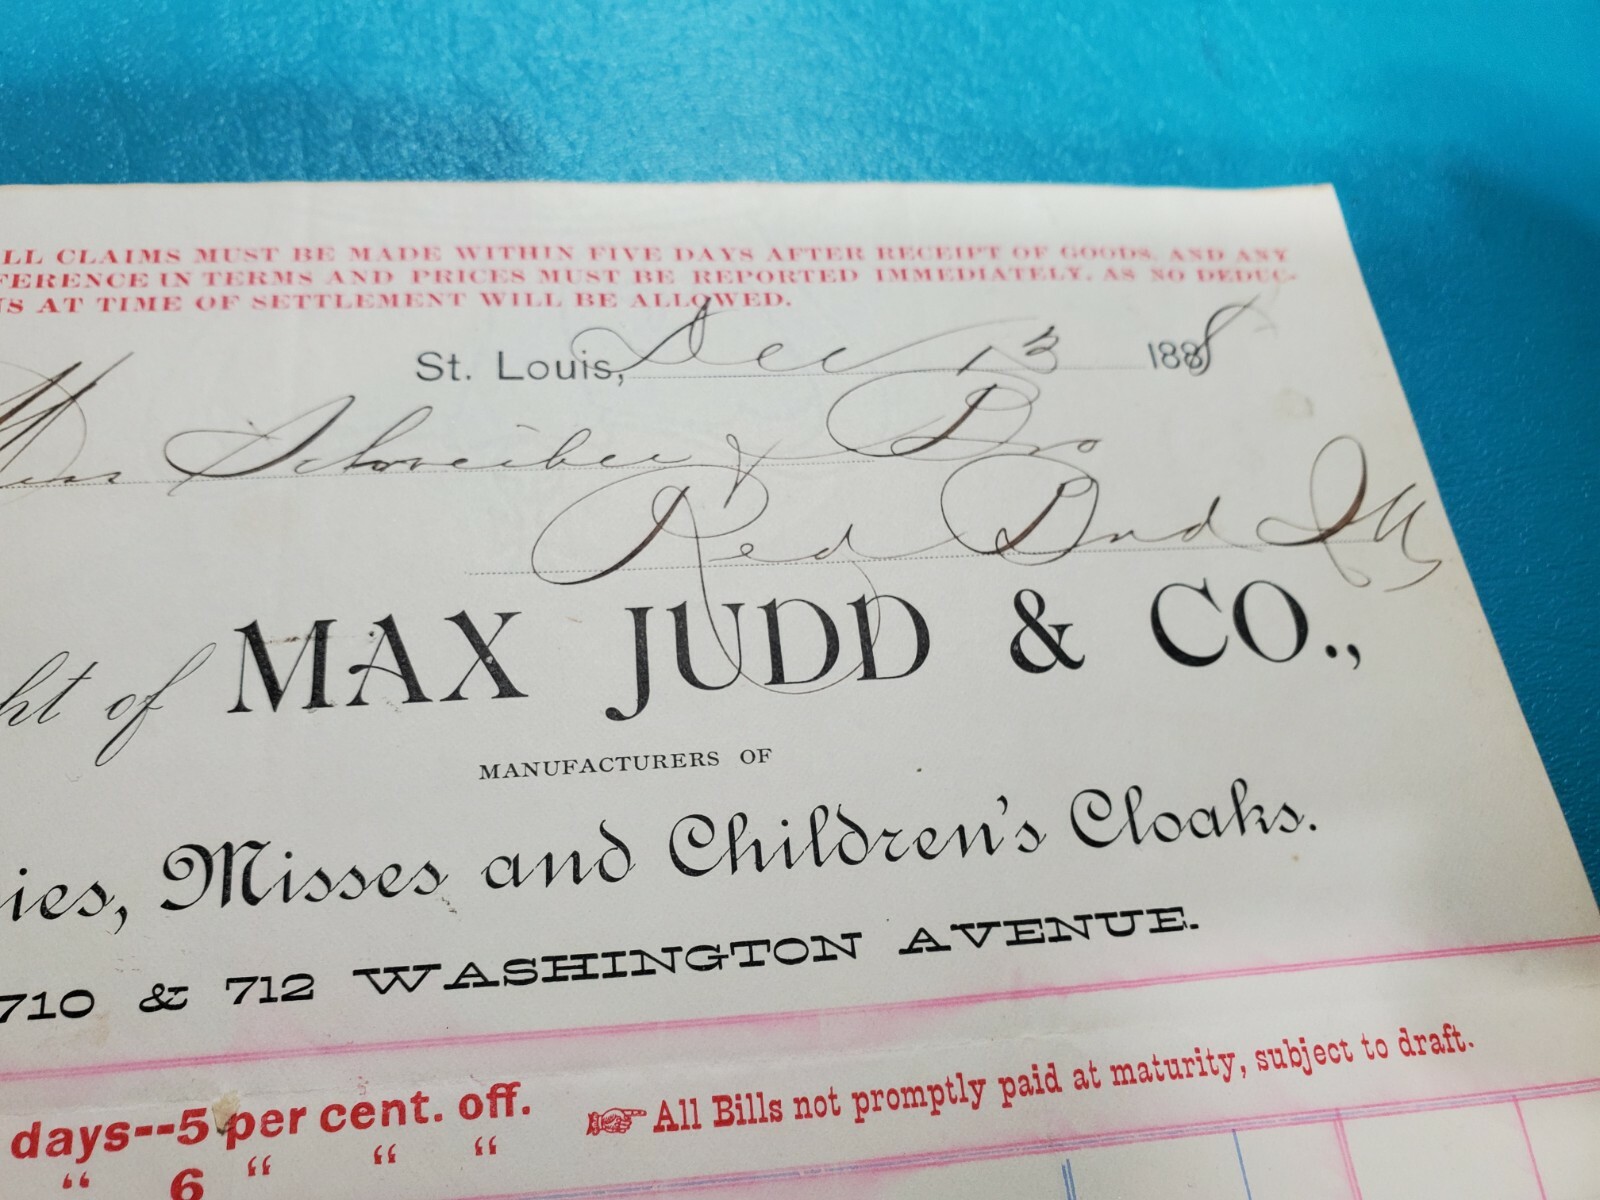 LL CLAIMS MUST BE MADE WITHIN FIVE DAYS AFTER RECEIPT OF GOODS, AND ANY
FERENCE IN TERMS AND PRICES MUST BE REPORTED IMMEDIATELY, AS NO DEDUC-
NS AT TIME OF SETTLEMENT WILL BE ALLOWED.
St. Louis, Dec 13 1888
Schreiber & Bro
Red Bud Ills
ht of MAX JUDD & CO.,
MANUFACTURERS OF
ies, Misses and Children's Cloaks.
710 & 712 WASHINGTON AVENUE.
days--5 per cent. off. ☞ All Bills not promptly paid at maturity, subject to draft.
“ 6 “ “ “